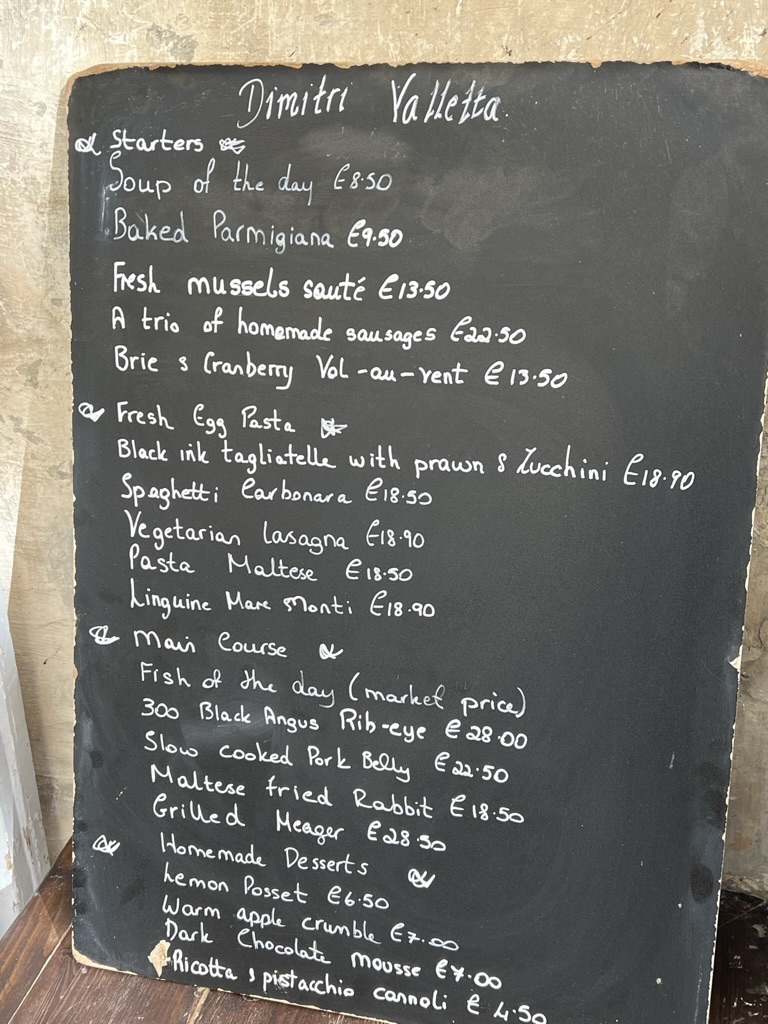 Dimitri Valletta
Starters
Soup of the day €8.50
Baked Parmigiana €9.50
Fresh mussels sauté €13.50
A trio of homemade sausages €22.50
Brie & Cranberry Vol-au-vent €13.50
Fresh Egg Pasta
Black ink tagliatelle with prawn & Zucchini €18.90
Spaghetti Carbonara €18.50
Vegetarian lasagna €18.90
Pasta Maltese €18.50
Linguine Mare Monti €18.90
Main Course
Fish of the day (market price)
300 Black Angus Rib-eye €28.00
Slow cooked Pork Belly €22.50
Maltese fried Rabbit €18.50
Grilled Meager €28.50
Homemade Desserts
Lemon Posset €6.50
Warm apple crumble €7.00
Dark Chocolate mousse €7.00
Ricotta & pistacchio cannoli €4.50